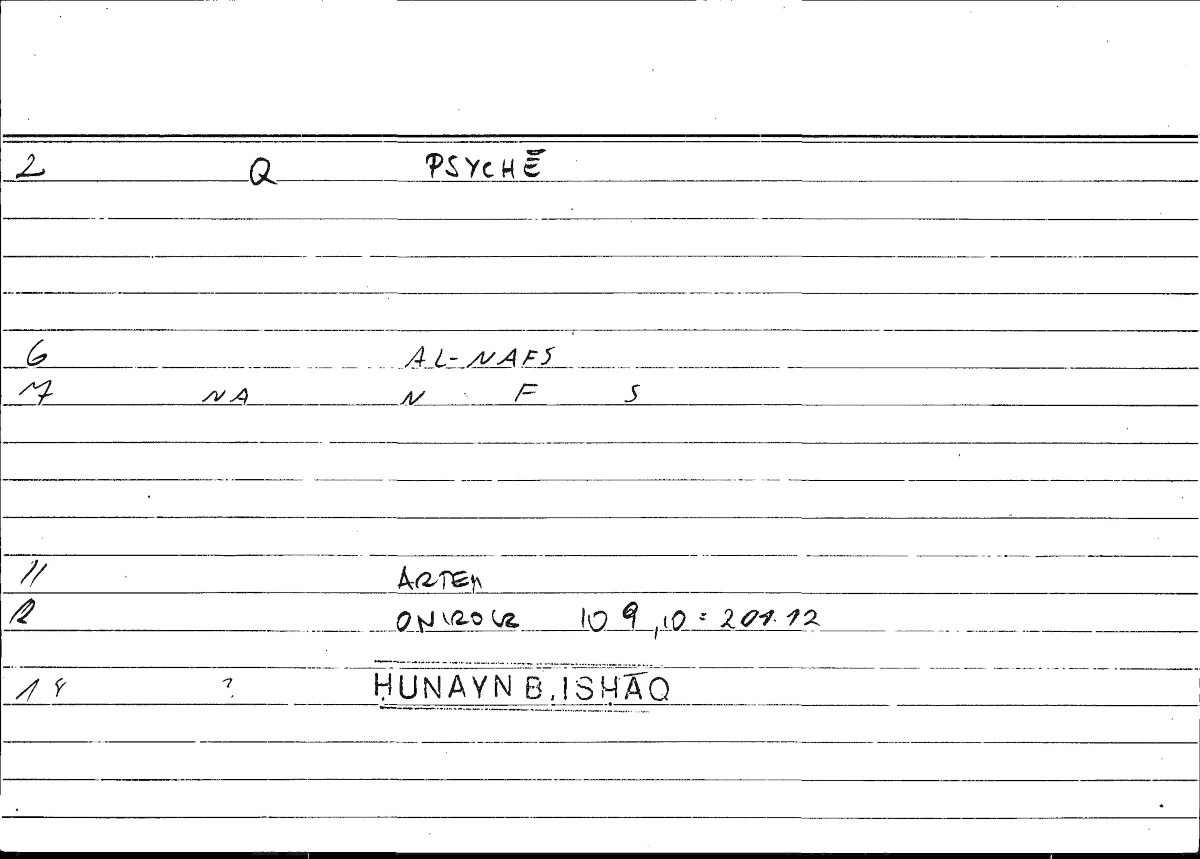 2 Q PSYCHĒ
6 AL-NAFS
7 NA N F S
11 ARTEM
12 ONIROCR 109,10 = 201.12
18 ? ḤUNAYN B. ISḤĀQ